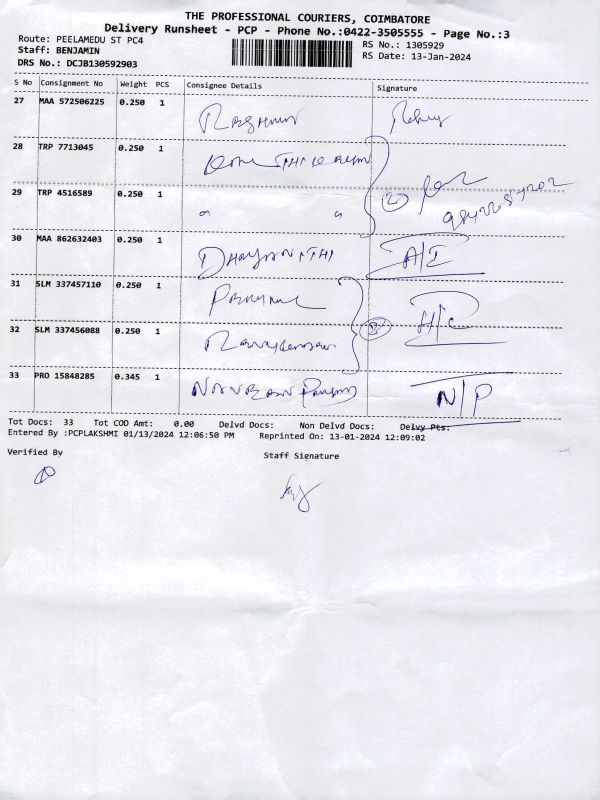 THE PROFESSIONAL COURIERS, COIMBATORE
Delivery Runsheet - PCP - Phone No.:0422-3505555 - Page No.:3
Route: PEELAMEDU ST PC4
RS No.: 1305929
Staff: BENJAMIN
RS Date: 13-Jan-2024
DRS No.: DCJB130592903
S No Consignment No Weight PCS Consignee Details Signature
27 MAA 572506225 0.250 1
28 TRP 7713045 0.250 1
29 TRP 4516589 0.250 1
30 MAA 862632403 0.250 1 DHAYANITHI A/I
31 SLM 337457110 0.250 1
32 SLM 337456088 0.250 1 H/C
33 PRO 15848285 0.345 1 N/P
Tot Docs: 33 Tot COD Amt: 0.00 Delvd Docs: Non Delvd Docs: Delvy Pts:
Entered By :PCPLAKSHMI 01/13/2024 12:06:50 PM Reprinted On: 13-01-2024 12:09:02
Verified By
Staff Signature